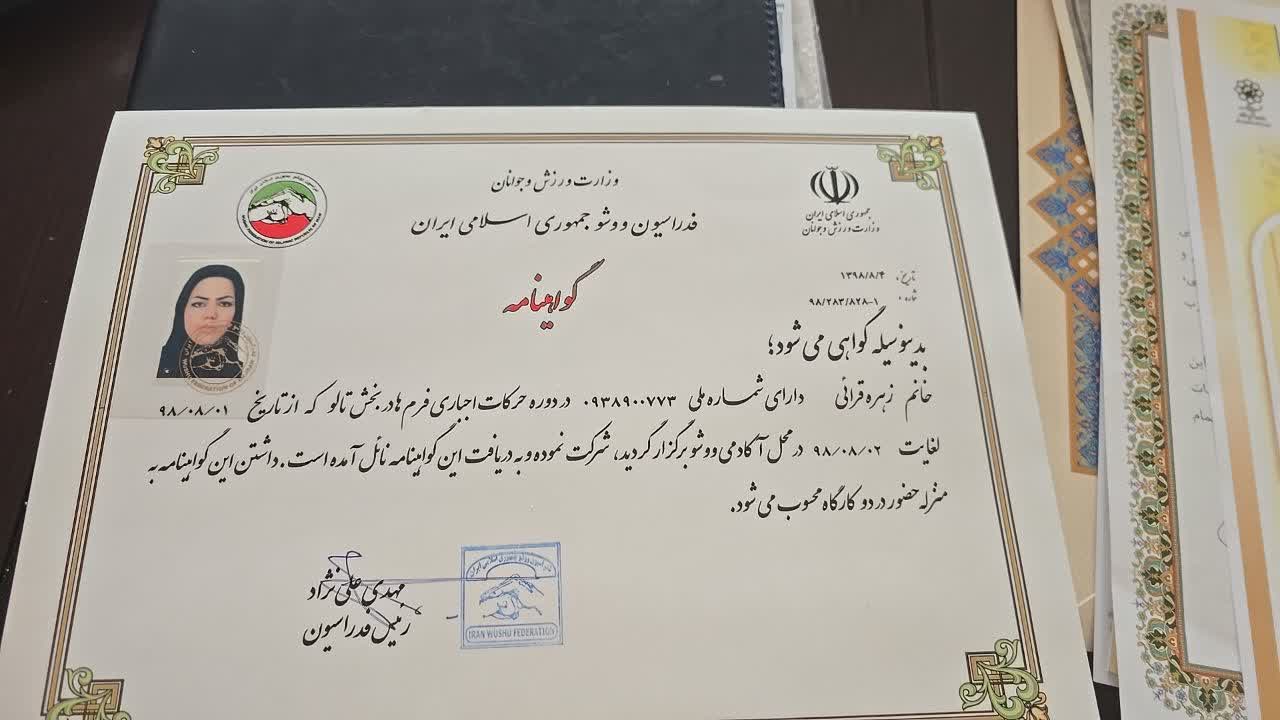 وزارت ورزش و جوانان
فدراسیون ووشو جمهوری اسلامی ایران
جمهوری اسلامی ایران
وزارت ورزش و جوانان
تاریخ: ۱۳۹۸/۸/۴
شماره: ۹۸/۲۸۳/۸۲۸-۱
گواهینامه
بدینوسیله گواهی می شود؛
خانم زهره قرائی دارای شماره ملی ۰۹۳۸۹۰۰۷۷۳ در دوره حرکات اجباری فرم ها در بخش تالو که از تاریخ ۹۸/۰۸/۰۱
لغایت ۹۸/۰۸/۰۲ در محل آکادمی ووشو برگزار گردید، شرکت نموده و به دریافت این گواهینامه نائل آمده است. داشتن این گواهینامه به
منزله حضور در دو کارگاه محسوب می شود.
مهدی علی نژاد
رئیس فدراسیون
فدراسیون ووشو جمهوری اسلامی ایران
IRAN WUSHU FEDERATION